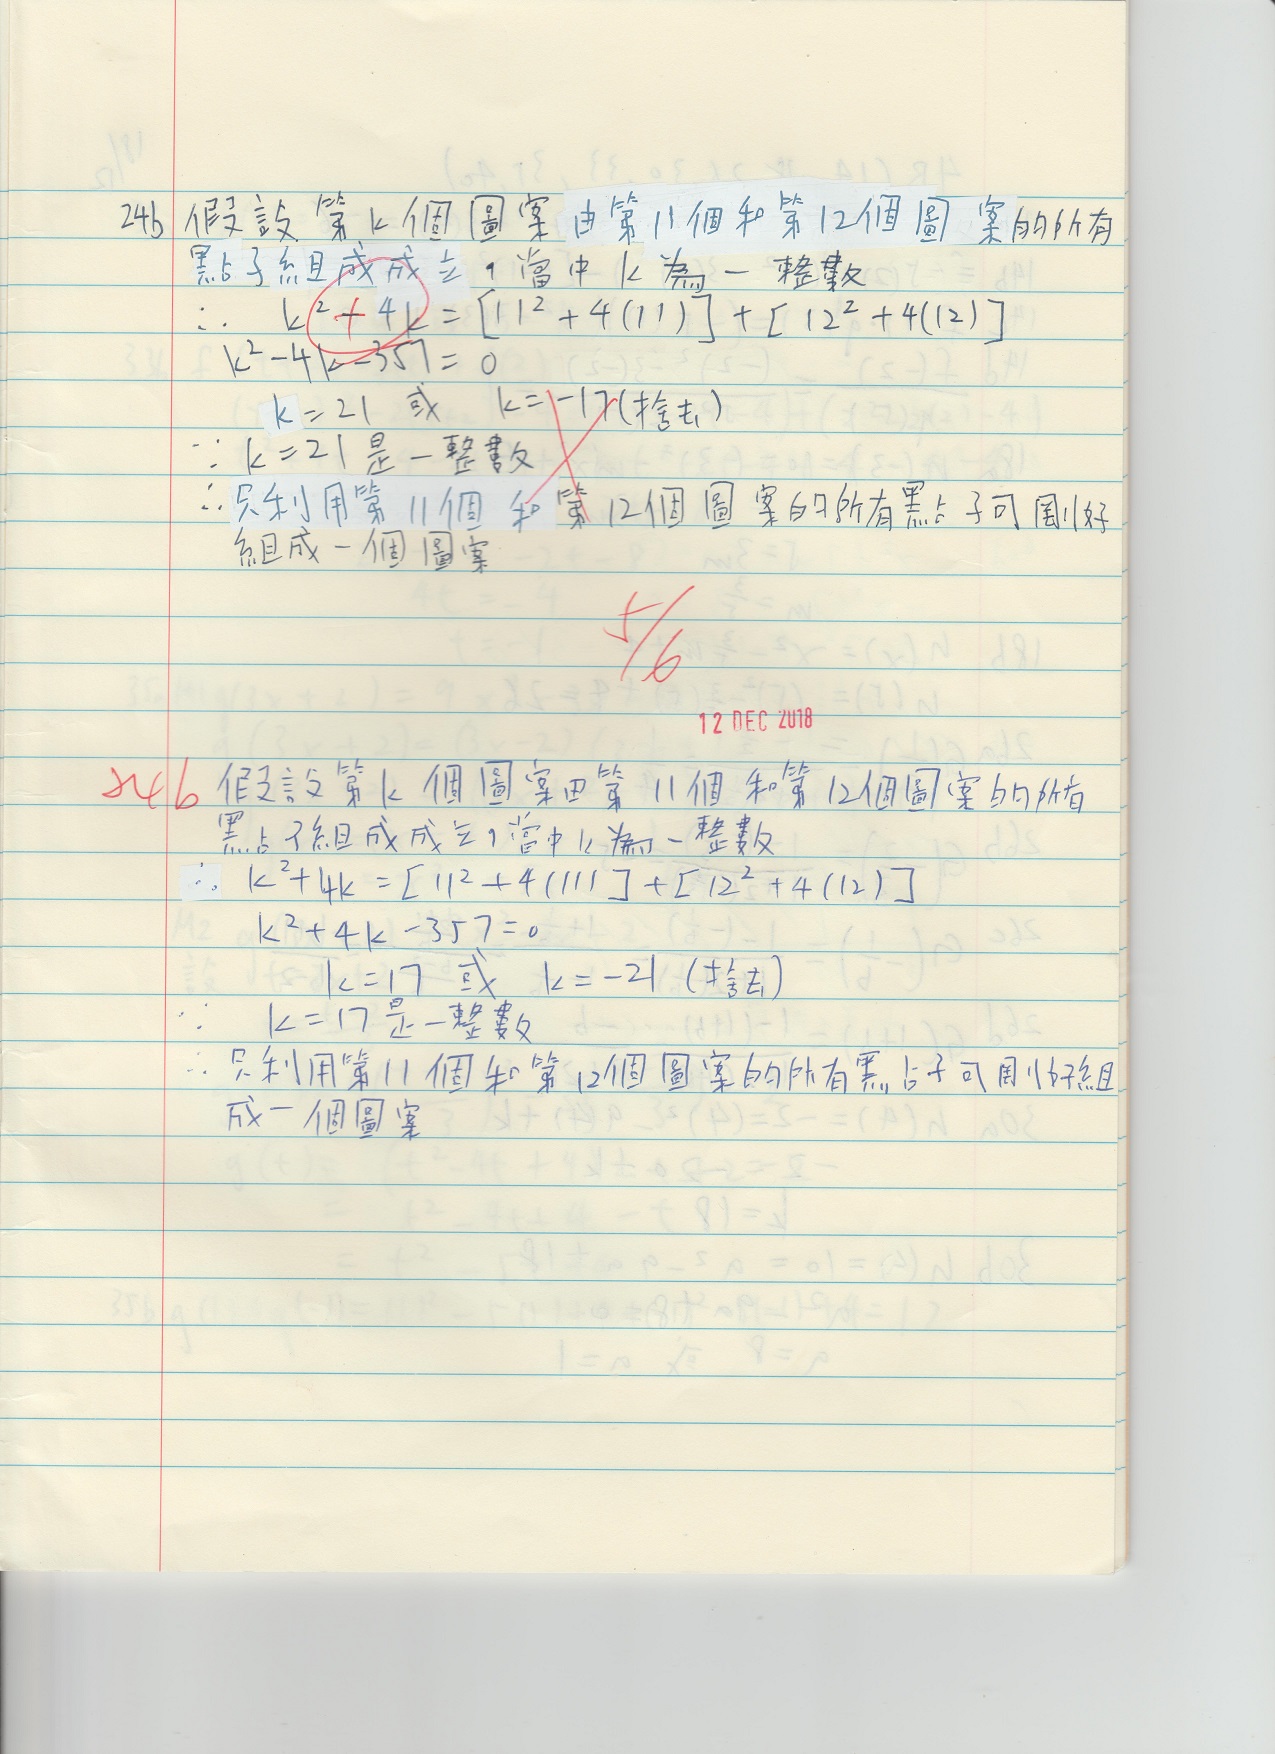 24b 假設第k個圖案由第11個和第12個圖案的所有
點子組成成立，當中k為一整數
∴ k²+4k=[11²+4(11)]+[12²+4(12)]
k²-4k-357=0
k=21 或 k=-17(捨去)
∵ k=21是一整數
∴只利用第11個和第12個圖案的所有點子可剛好
組成一個圖案
5/6
12 DEC 2018
24b 假設第k個圖案由第11個和第12個圖案的所有
點子組成成立，當中k為一整數
∴ k²+4k=[11²+4(11)]+[12²+4(12)]
k²+4k-357=0
k=17 或 k=-21 (捨去)
∵ k=17是一整數
∴ 只利用第11個和第12個圖案的所有點子可剛好組
成一個圖案